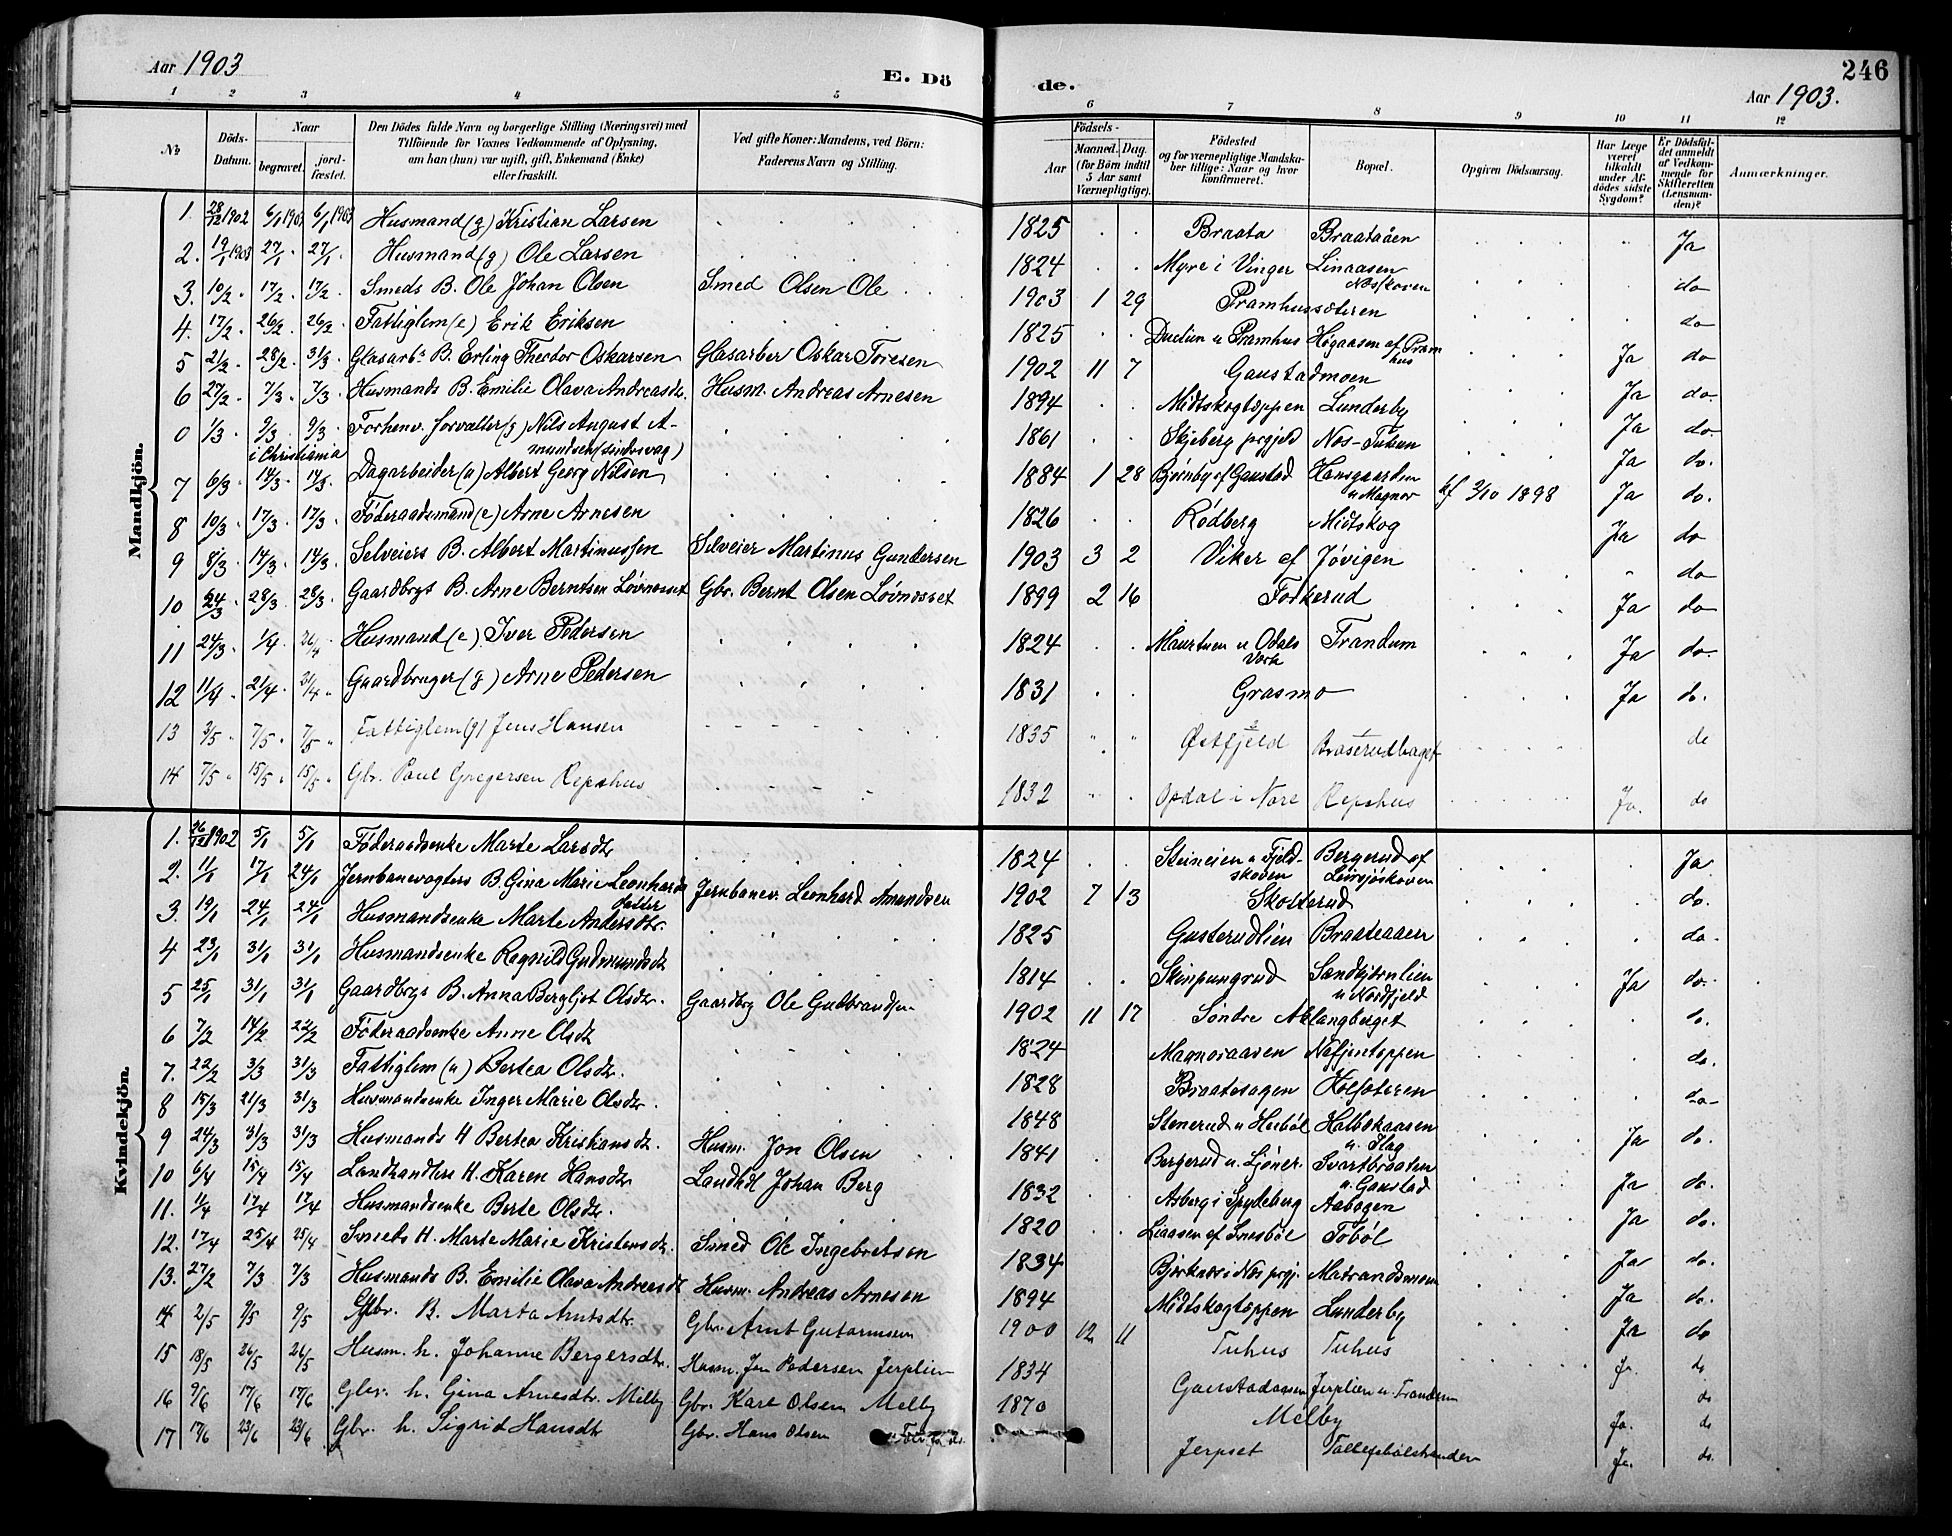 Aar 1903
E. Dö
de.
246
Aar 1903.
1 2 3 4 5 6 7 8 9 10 11 12
No
Döds-Datum.
Naar
begravet.
jordfæstet.
Den Dödes fulde Navn og borgerlige Stilling (Næringsvei) med Tilföiende for Voxnes Vedkommende af Oplysning, om han (hun) var ugift, gift, Enkemand (Enke) eller fraskilt.
Ved gifte Koner: Mandens, ved Börn: Faderens Navn og Stilling.
Födsels-
Aar
Maaned. Dag.
(for Börn indtil 5 Aar samt Værnepligtige).
Födested og for værnepligtige Mandskaber tillige: Naar og hvor konfirmeret.
Bopæl.
Opgiven Dödsaarsag.
Har Læge været tilkaldt under Afdödes sidste Sygdom?
Er Dödsfaldet anmeldt af Vedkommende for Skifteretten (Lensmanden)?
Anmærkninger.
Mandkjön.
1. 28/12 1902 6/1 1903 6/1 1903 Husmand (g) Kristian Larsen 1825 Braata Braataåen Ja
2. 19/1 1903 27/1 27/1 Husmand (g) Ole Larsen 1824 Myre i Vinger Linaasen Næsskoven do
3. 10/2 17/2 17/2 Smeds B. Ole Johan Olsen Smed Olsen Ole 1903 1 29 Pramhussæteren do
4. 17/2 26/2 26/2 Fattiglem (e) Erik Eriksen 1825 u Pramhus Högaasen af Pramhus Ja do
5 21/2 28/2 31/3 Glasarb. B. Erling Theodor Oskarsen Glasarber Oskar Toresen 1902 11 7 Gaustadmoen Ja do
6 27/2 7/3 7/3 Husmands B. Emilie Olava Andreasdt. Husm. Andreas Arnesen 1894 Midtskogtoppen Lunderby Ja do
0 1/3 9/3 9/3 Forhenv. forvalter (g) Nils August Amundsen
i Christiania
1861 Skjeberg prgjeld Nos-Tuhun Ja do.
7 6/3 14/3 14/3 Dagarbeider (u) Albert Georg Nilsen 1884 1 28 Bjørnby af Gaustad Hansgaarden u Magnor kf 2/10 1898 Ja do.
8 10/3 17/3 17/3 Föderaadsmand (e) Arne Arnesen 1826 Rödberg Midtskog Ja do
9 8/3 14/3 14/3 Selveiers B. Albert Martinussen Selveier Martinus Gundersen 1903 3 2 Viker af Jövigen do
10 24/3 28/3 28/3 Gaardbrgs B. Arne Berntsen Lövnæset Gbr. Bernt Olsen Lövnæset 1899 2 16 Forkerud Ja do
11 24/3 1/4 26/4 Husmand (e) Iver Pedersen 1824 u Odals Værk Trandum Ja do.
12 11/4 21/4 21/4 Gaardbruger (g) Arne Pedersen 1831 Grasmo Ja do.
13 3/5 7/5 7/5 Fattiglem (g) Jens Hansen 1835 Østfjeld Braserudhaget do
14 7/5 15/5 15/5 Gbr. Paul Gregersen Repshus 1832 Opdal i Nore Repshus Ja. do
Kvindekjön.
1. 26/12 1902 5/1 5/1 Föderaadsenke Marte Larsdtr 1824 Steineien u Fjeldskoven Bergerud af Leirsjöskoven Ja
2. 11/1 17/1 24/1 Jernbanevogters B. Gina Marie Leonhardsdatter Jernbanev. Leonhard Amundsen 1902 7 13 Skotterud do.
3. 19/1 24/1 24/1 Husmandsenke Marte Andersdtr. 1825 Gusterudlien Braataaen do.
4 23/1 31/1 31/1 Husmandsenke Ragnild Gudmundsdt 1814 Skinpungrud Sandbjörnlien u Nordfjeld Ja do.
5 25/1 31/1 31/1 Gaardbrgs B. Anna Bergljot Olsdtr. Gaardbrg Ole Gulbrandsen 1902 11 17 Söndre Aklangberget do.
6 7/2 14/2 22/2 Föderaadsenke Anne Olsdt 1824 Magnoraasen Næfjentoppen do.
7. 22/2 3/3 31/3 Fattiglem (u) Bertea Olsdtr. 1828 Braatesagen do
8 15/3 21/3 31/3 Husmandsenke Inger Marie Olsdtr. 1848 Stenerud u Helböl Halbekaasen u. Flag Ja do.
9 24/3 31/3 31/3 Husmands H Bertea Kristiansdt. Husm. Jon Olsen 1841 Bergerud u. Ljöner. Svartbraaten u. Gaustad Ja do.
10 6/4 15/4 15/4 Landhandlers H. Karen Hansdtr Landhdl Johan Berg 1832 Asberg i Spydeberg Aabogen Ja do.
11. 11/4 17/4 17/4 Husmandsenke Berte Olsdtr. 1820 Liaasen af Snesböl Toböl Ja do.
12. 17/4 25/4 25/4 Smeds H. Marte Marie Kristensdt. Smed Ole Ingebretsen 1834 Björknæs i Næs prgj. Matrandsmoen Ja do.
13. 27/2 7/3 7/3 Husmands B. Emilie Olava Andreasdt Husm. Andreas Arnesen 1894 Midtskogtoppen Lunderby Ja do
14 2/5 9/5 9/5 Gbr. B. Marta Arntsdtr. Gbr. Arnt Gutormsen 1900 12 11 Tuhus Tuhus Ja. do
15 18/5 26/5 26/5 Husm. h. Johanne Bergersdtr. Husm. Jon Pedersen Jerplien 1834 Gaustadaasen Jerplien u. Trandem do
16 9/6 17/6 17/6 Gbr. h. Gina Arnesdtr. Melby Gbr. Karl Olsen Melby 1870 Melby Ja. do
17 17/6 23/6 23/6 Gbr. h. Sigrid Hansdtr Gbr. Hans Olsen Jerpset Ja. do.